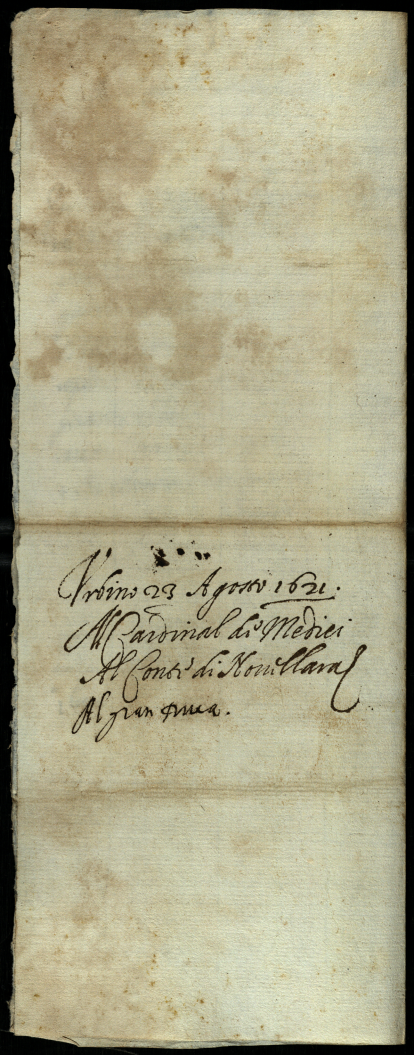 Vrbino 23 Agosto 1621.
Al Cardinal de Medici
Al Conte di Nouellara
Al gran Duca.